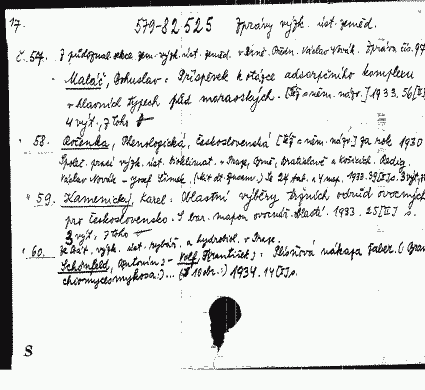 17. 579-82 525 Zprávy výzk. úst. zeměd.
č. 57. Z půdoznal. sekce zem. výzk. úst. zeměd. v Brně. Předn. Václav Novák. Zpráva čís. 97
Maláč, Bohuslav: Příspěvek k otázce adsorpčního komplexu
v hlavních typech půd moravských. [Též s něm. názv.] 1933. 56 [I]
4 výt., z toho
" 58. Ročenka, Phenologická, Československá [Též s něm. názv.] za rok 1930
Společ. prací výzk. úst. bioklimat. v Praze, Brně, Bratislavě a Košicích. Redig.
Václav Novák - Josef Šimek. 1933.
" 59. Kamenický, Karel: Vlastní výběry tržních odrůd ovocných
pro Československo. S bar. mapou ovocnář. oblastí. 1933. 25 [I] s.
3 výt., z toho
" 60. Ze stát. výzk. úst. rybář. a hydrobiol. v Praze.
Schönfeld, Antonín - Volf, František: Plísňová nákaza žaber. (Bran
chiomycesmykosa.) ... (S 16 obr.) 1934. 14 [I] s.
8